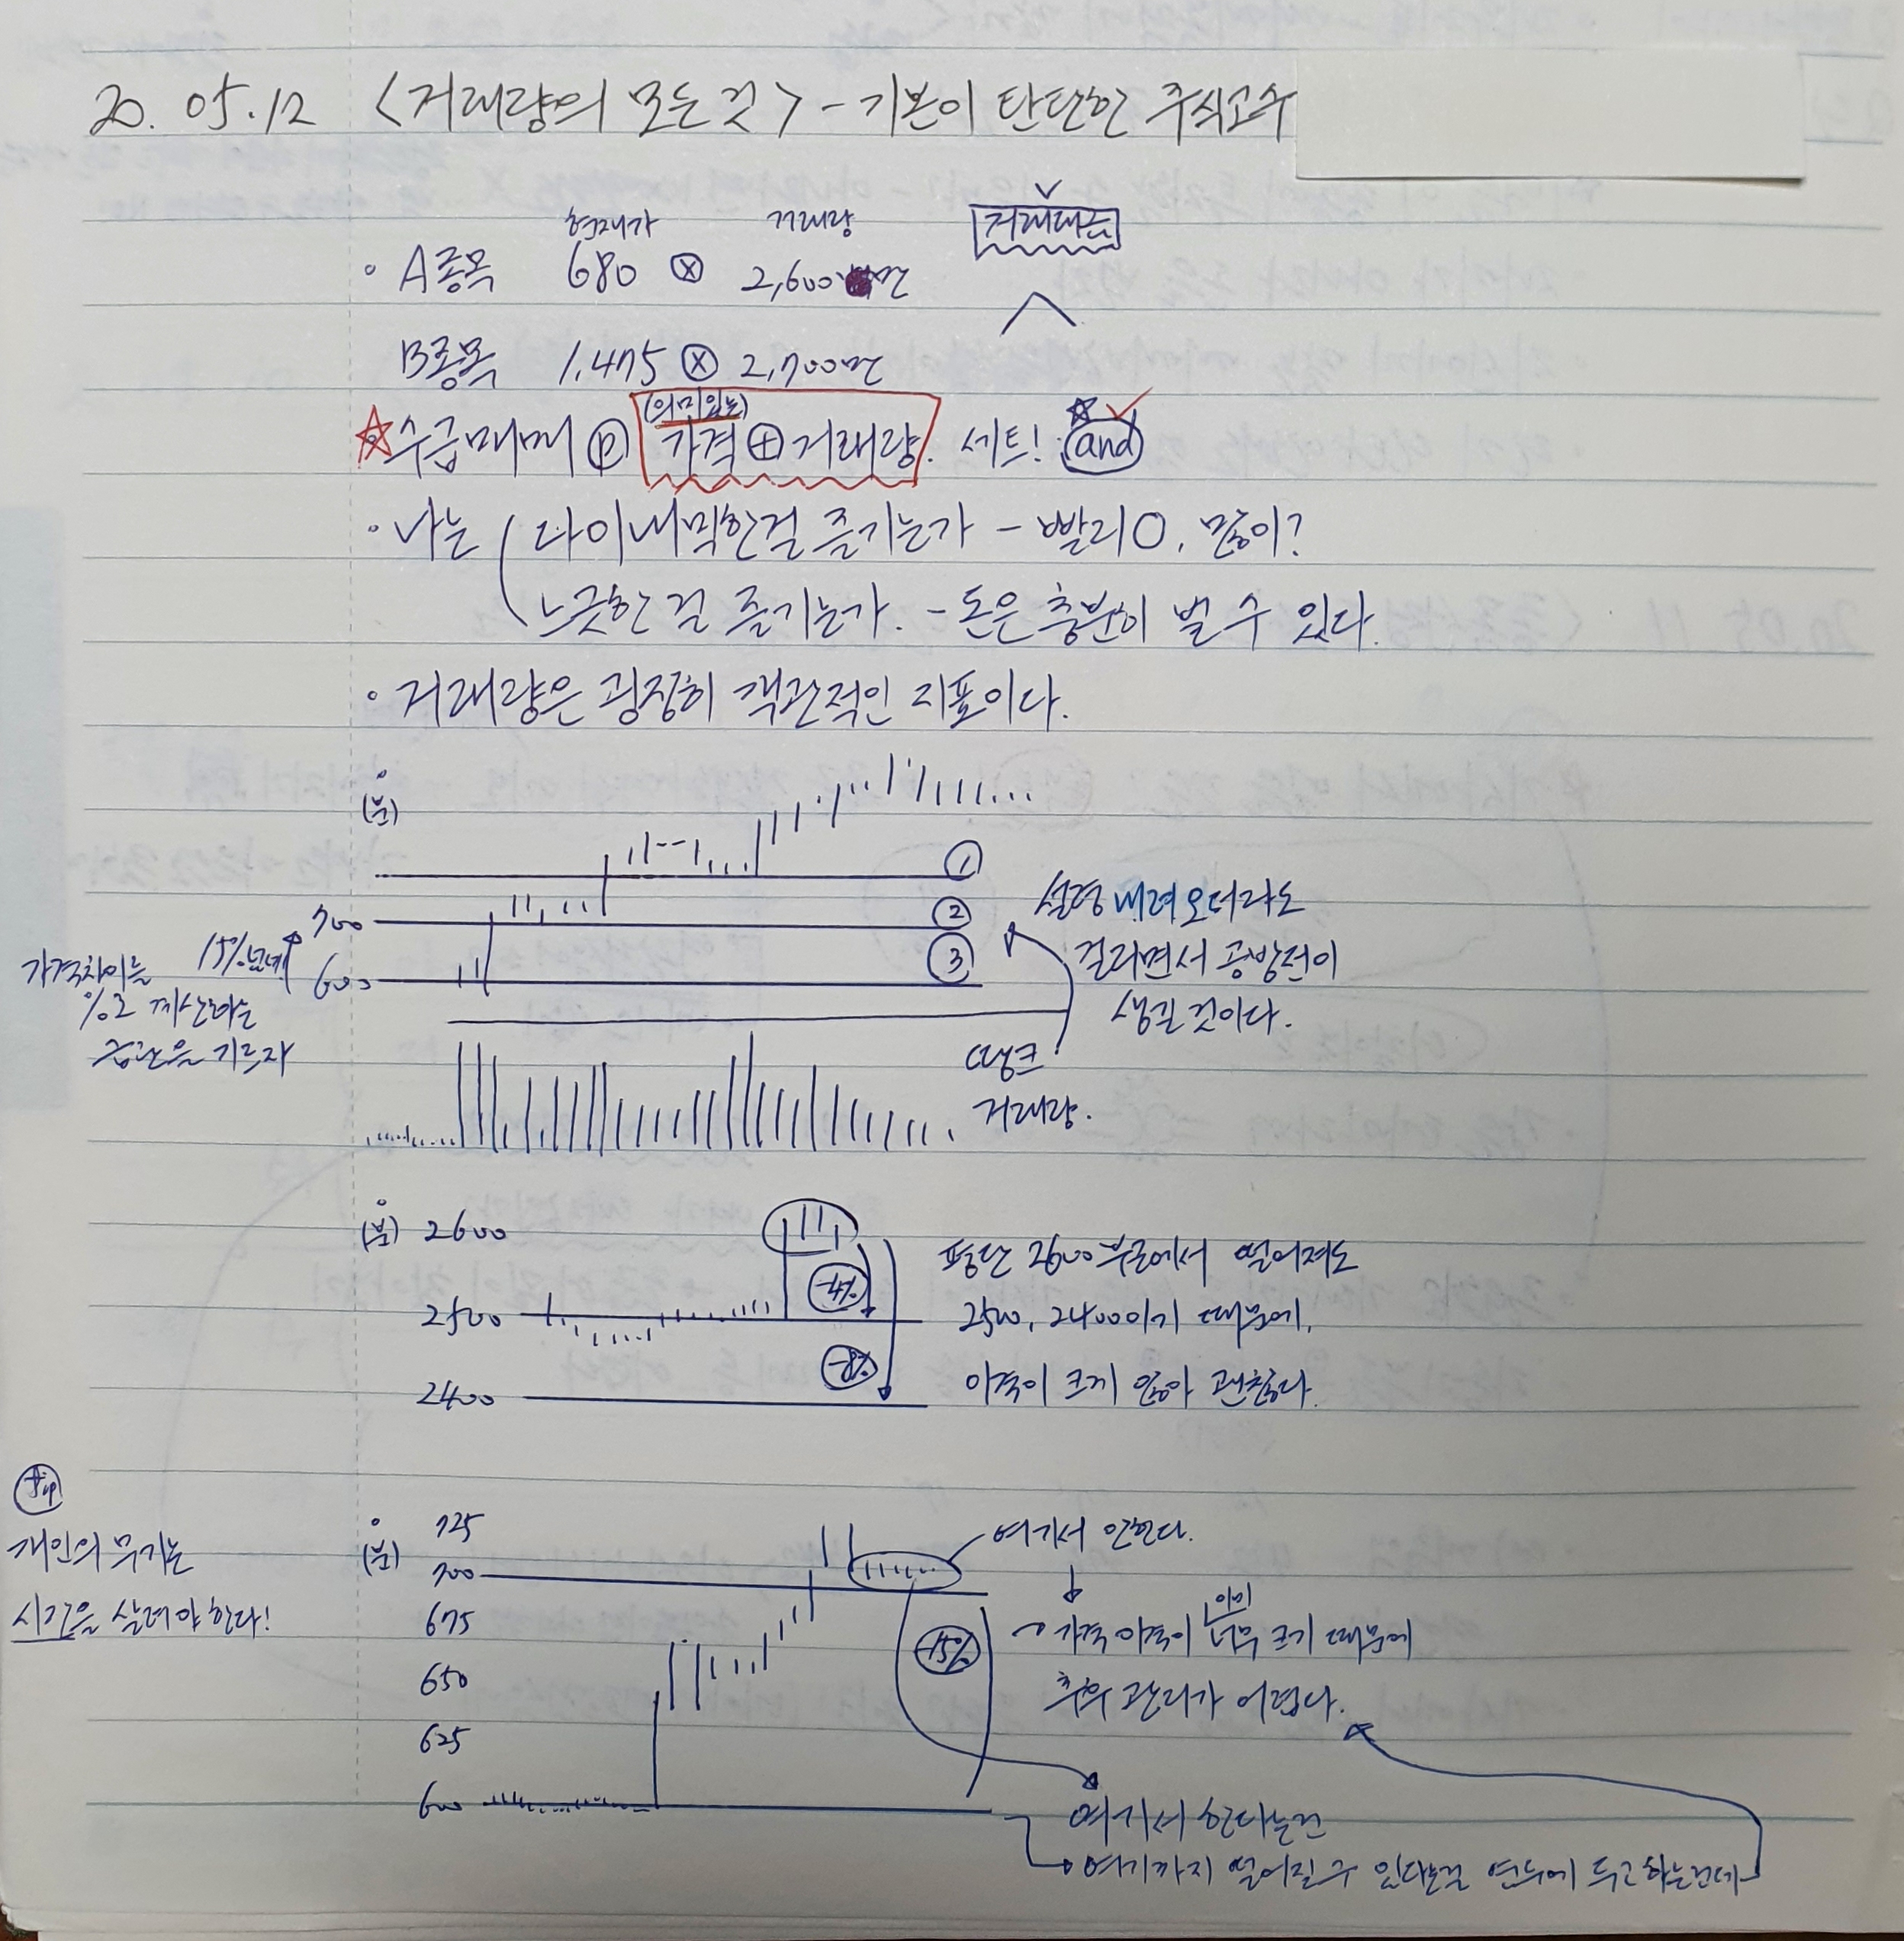 20. 05. 12 <거래량의 모든 것> - 기본이 탄탄한 주식고수
현재가 거래량 거래대금
• A종목 680 ⓧ 2,600만
B종목 1,475 ⓧ 2,700만
(의미있는)
☆수급매매 ⓟ 가격 ⊕ 거래량. 세트! and
• 나는 다이내믹한걸 즐기는가 - 빨리O, 많이?
느긋한 걸 즐기는가. - 돈은 충분히 벌 수 있다.
• 거래량은 굉장히 객관적인 지표이다.
(분)
①
700 ②
600 ③
15%넘네
가격차이는
%로 계산하는
습관을 기르자
설령 내려오더라도
걸리면서 공방전이
생길 것이다.
땡크
거래량.
(분) 2600
2500
2400
-4%
-8%
평단 2600부근에서 떨어져도
2500, 2400이기 때문에,
이격이 크게 않아 괜찮다.
Tip
개인의 무기는
시간을 살려야 한다!
(분) 725
700
675
650
625
600
15%
여기서 안한다.
→ 가격 이격이 이미 너무 크기 때문에
추후 관리가 어렵다.
여기서 한다는건
여기까지 떨어질 수 있다는걸 염두에 두고 하는건데